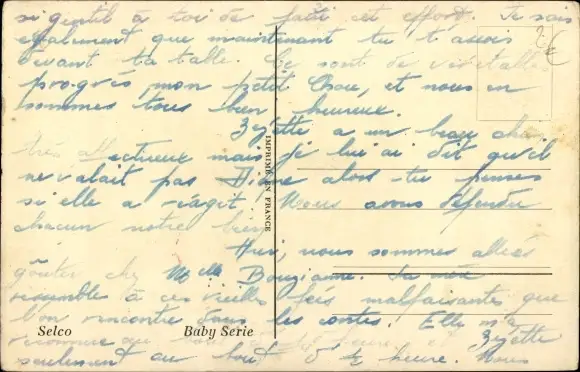 si gentil à toi de faire cet effort. Je sais
également que maintenant tu t'assois
devant ta table. Ce sont de véritables
progrès, mon petit Chou, et nous en
sommes tous bien heureux.
Zezette a un beau chat
très affectueux mais je lui ai dit qu'il
ne valait pas alors tu penses
si elle a réagit. Nous avons défendu
chacun notre bien
Hier, nous sommes allées
goûter chez Melle Sa mère
ressemble à ces vieilles fées malfaisantes que
l'on rencontre dans les contes. Elle m'a
reconnue au bout et Zezette
seulement au bout d'½ heure. Nous
IMPRIMÉ EN FRANCE
Selco
Baby Serie
2€